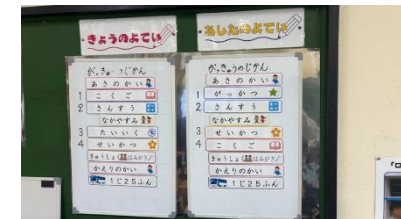 きょうのよてい
がっきゅうのじかん
あさのかい
1 こくご
2 さんすう
なかやすみ
3 たいいく
4 せいかつ
きゅうしょく はみがき
かえりのかい
1じ25ふん
あしたのよてい
がっきゅうのじかん
あさのかい
1 がっかつ
2 さんすう
なかやすみ
3 せいかつ
4 こくご
きゅうしょく はみがき
かえりのかい
1じ25ふん